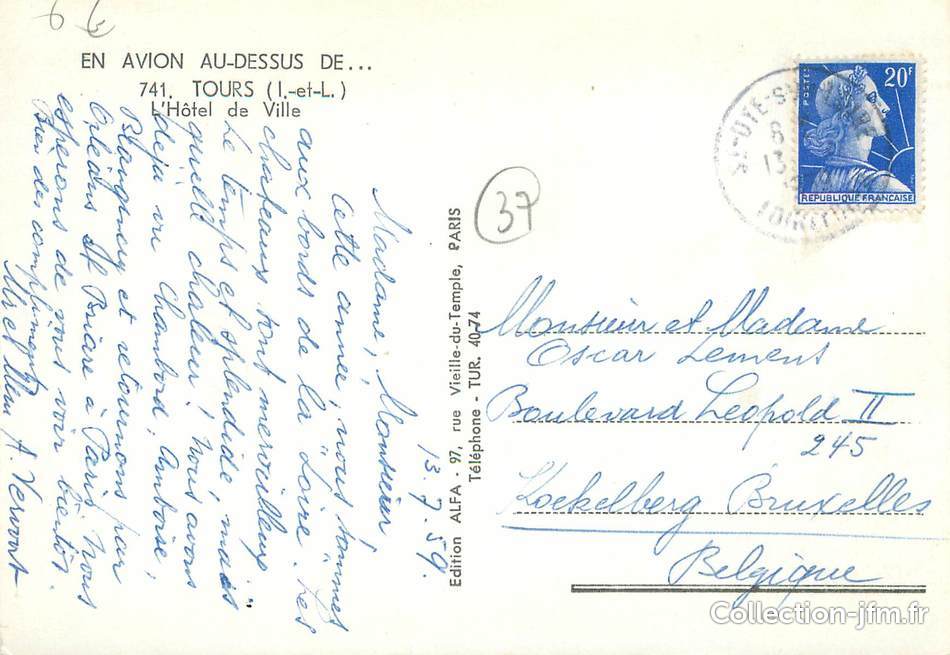 EN AVION AU-DESSUS DE...
741. TOURS (I.-et-L.)
L'Hôtel de Ville
13.7.59.
Madame, Monsieur,
Cette année, nous sommes
aux bords de la Loire. Les
chateaux sont merveilleux
Le temps est splendide, mais
quelle chaleur! Nous avons
déjà vu Chambord, Amboise,
et retournons par
Orléans Briare à Paris. Nous
espérons de vous voir bientôt.
Bien des compliments
Mr et Mme A. Vervoort
37
Edition ALFA - 97, rue Vieille-du-Temple, PARIS
Téléphone - TUR. 40-74
POSTES
20F
REPUBLIQUE FRANÇAISE
13
Monsieur et Madame
Oscar Lemens
Boulevard Leopold II
245
Koekelberg Bruxelles
Belgique
Collection-jfm.fr